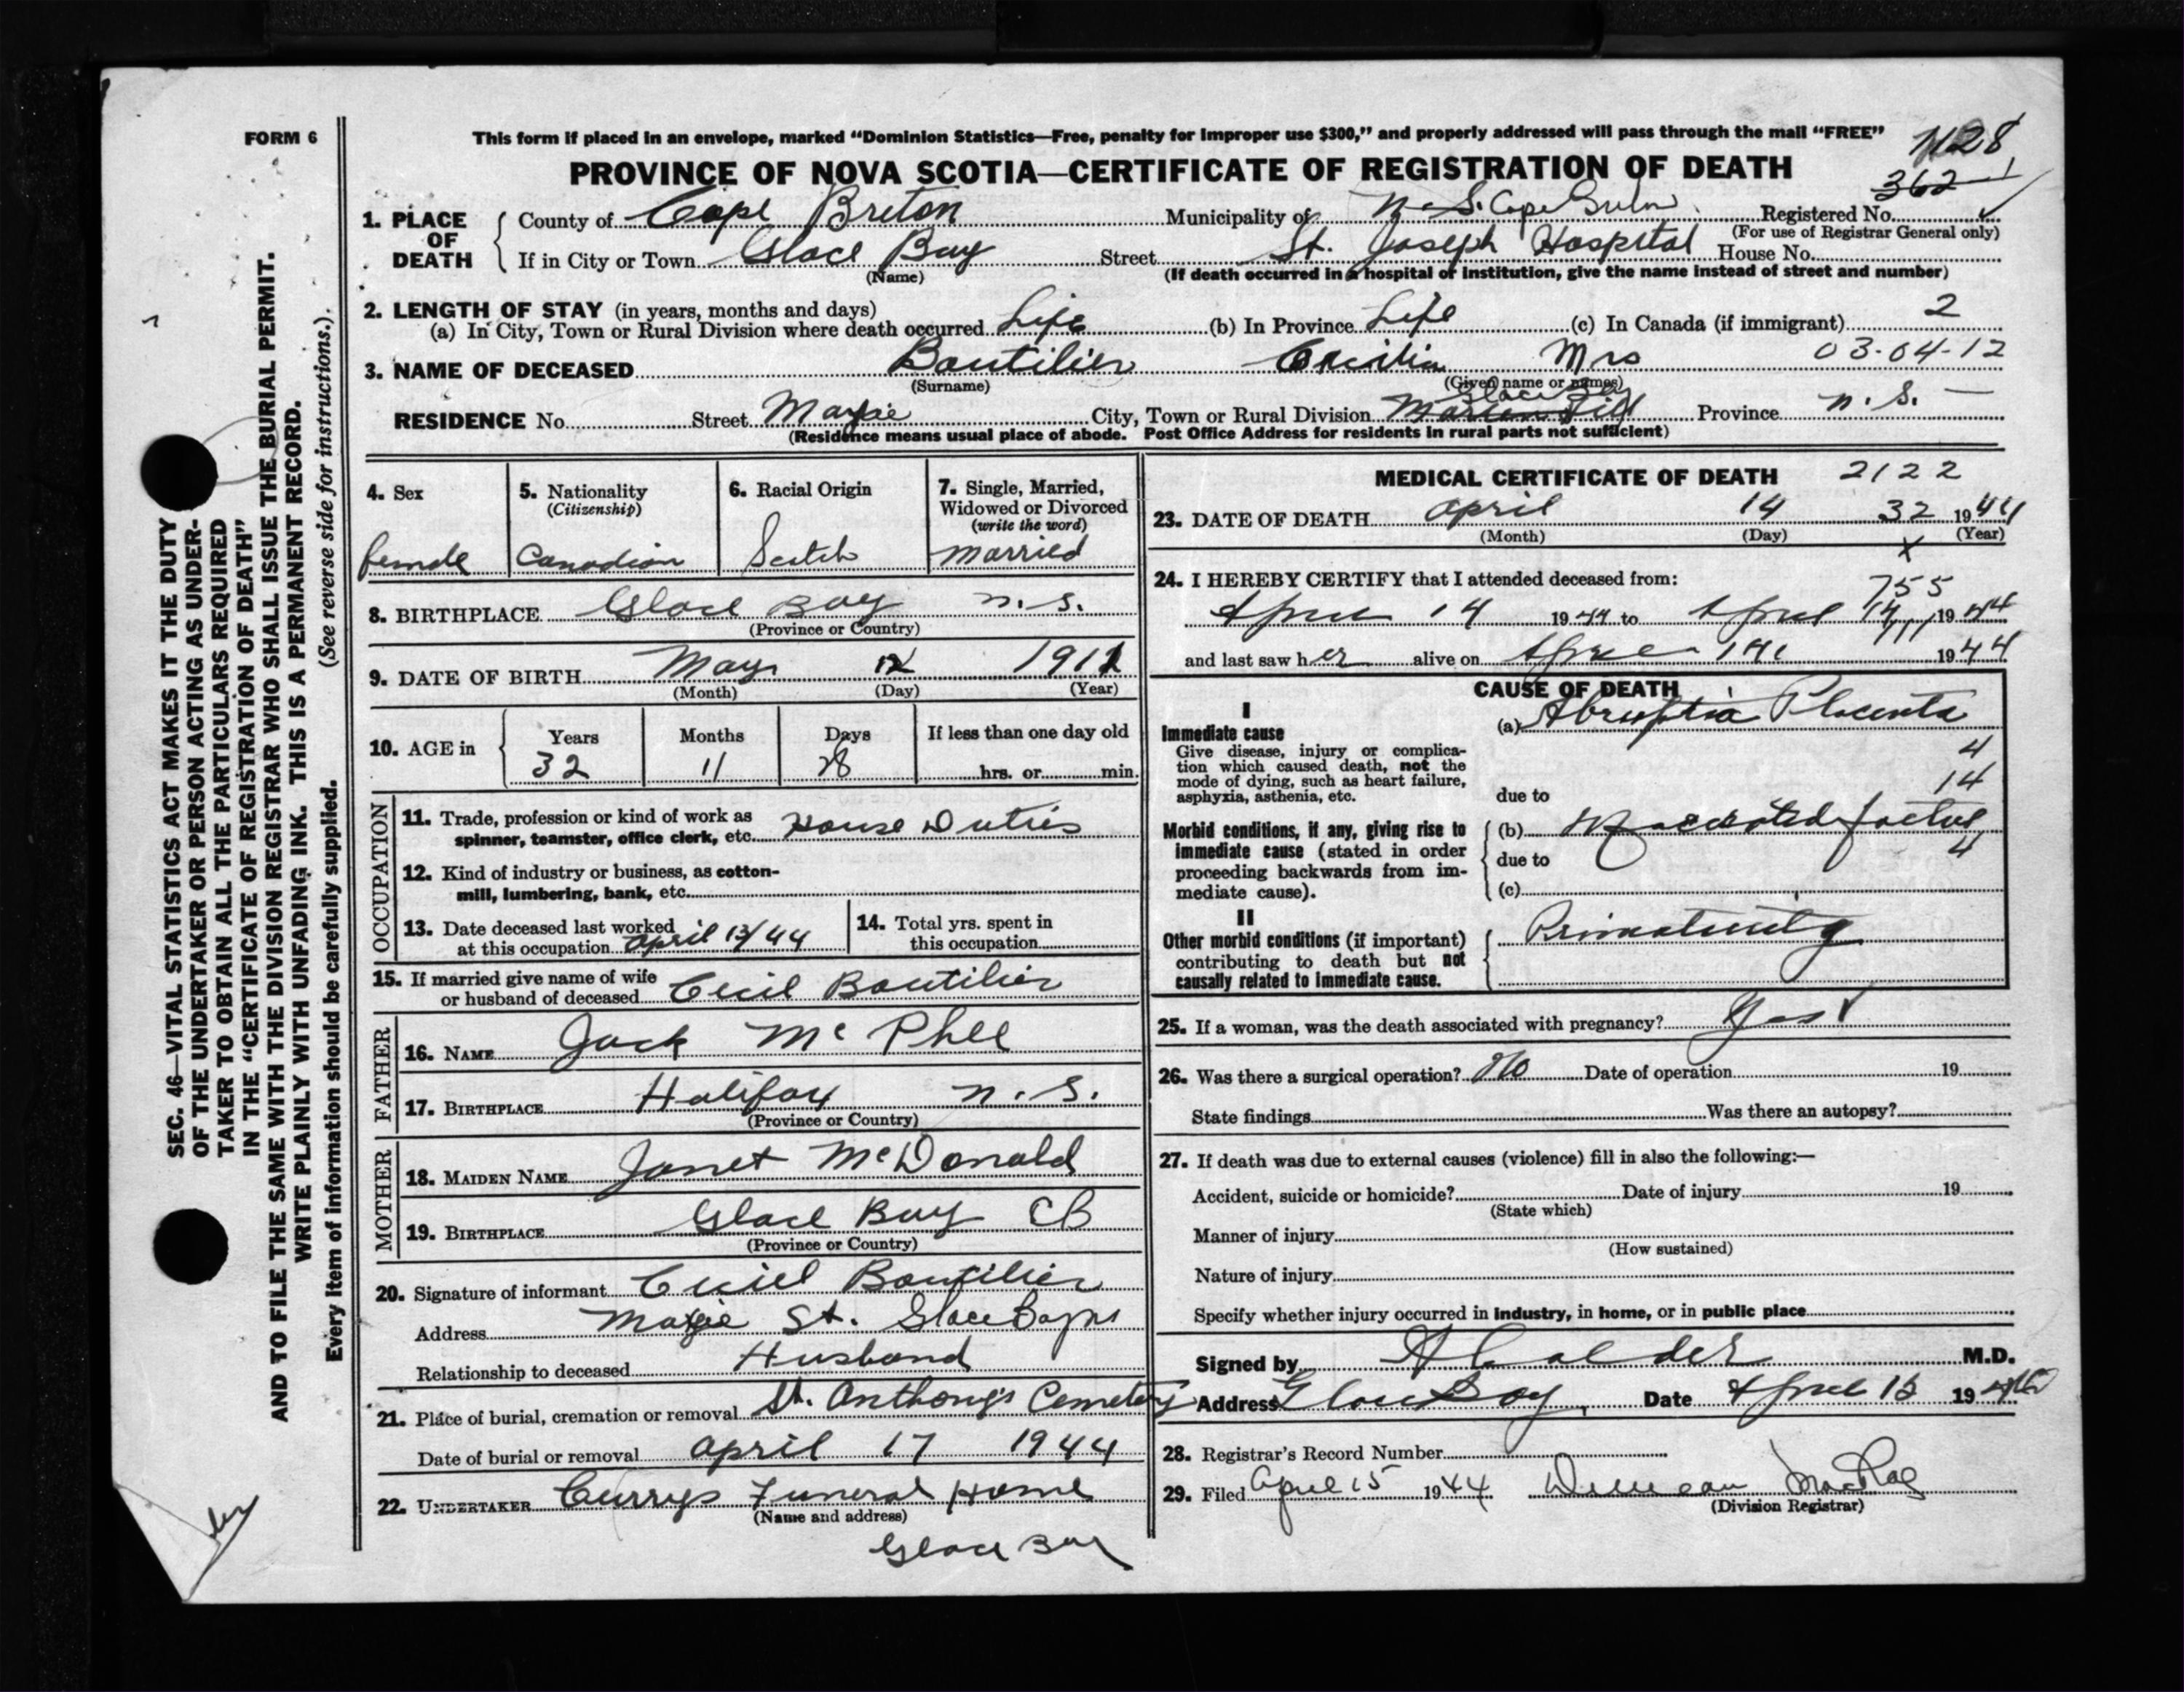 FORM 6
This form if placed in an envelope, marked “Dominion Statistics—Free, penalty for improper use $300,” and properly addressed will pass through the mail “FREE”
PROVINCE OF NOVA SCOTIA—CERTIFICATE OF REGISTRATION OF DEATH
362
1. PLACE OF DEATH
County of Cape Breton Municipality of N.S. Cape Breton Registered No.
(For use of Registrar General only)
If in City or Town Glace Bay Street St. Joseph Hospital House No.
(Name) (If death occurred in a hospital or institution, give the name instead of street and number)
2. LENGTH OF STAY (in years, months and days)
(a) In City, Town or Rural Division where death occurred Life (b) In Province Life (c) In Canada (if immigrant) 2
3. NAME OF DECEASED Boutilier Cecilia Mrs 03-04-12
(Surname) (Given name or names)
Glace Bay
RESIDENCE No. Street City, Town or Rural Division Province N.S.
(Residence means usual place of abode. Post Office Address for residents in rural parts not sufficient)
4. Sex
female
5. Nationality
(Citizenship)
Canadian
6. Racial Origin
Scotch
7. Single, Married,
Widowed or Divorced
(write the word)
married
8. BIRTHPLACE Glace Bay N.S.
(Province or Country)
9. DATE OF BIRTH May 1911
(Month) (Day) (Year)
10. AGE in
Years Months Days If less than one day old
32 11 28 hrs. or min.
OCCUPATION
11. Trade, profession or kind of work as
spinner, teamster, office clerk, etc. House Duties
12. Kind of industry or business, as cotton-
mill, lumbering, bank, etc.
13. Date deceased last worked
at this occupation april 13/44
14. Total yrs. spent in
this occupation
15. If married give name of wife
or husband of deceased Cecil Boutilier
FATHER
16. NAME Jack Mc Phee
17. BIRTHPLACE Halifax N.S.
(Province or Country)
MOTHER
18. MAIDEN NAME Janet McDonald
19. BIRTHPLACE Glace Bay CB
(Province or Country)
20. Signature of informant Cecil Boutilier
Address St. Glace Bay NS
Relationship to deceased Husband
21. Place of burial, cremation or removal St. Anthony's Cemetery
Date of burial or removal april 17 1944
22. UNDERTAKER Currys Funeral Home
(Name and address)
Glace Bay
MEDICAL CERTIFICATE OF DEATH 2122
23. DATE OF DEATH april 14 32 1944
(Month) (Day) (Year)
x
24. I HEREBY CERTIFY that I attended deceased from:
755
April 14 1944 to April 14 1944
and last saw her alive on April 14 1944
CAUSE OF DEATH
I
Immediate cause
Give disease, injury or complica-
tion which caused death, not the
mode of dying, such as heart failure,
asphyxia, asthenia, etc.
(a) Abruptia Placenta
4
14
due to
Morbid conditions, if any, giving rise to
immediate cause (stated in order
proceeding backwards from im-
mediate cause).
(b) Macerated foetus
4
due to
(c)
II
Other morbid conditions (if important)
contributing to death but not
causally related to immediate cause.
25. If a woman, was the death associated with pregnancy? Yes
26. Was there a surgical operation? No Date of operation 19
State findings Was there an autopsy?
27. If death was due to external causes (violence) fill in also the following:—
Accident, suicide or homicide? Date of injury 19
(State which)
Manner of injury
(How sustained)
Nature of injury
Specify whether injury occurred in industry, in home, or in public place
Signed by A Calder M.D.
Address Glace Bay Date April 15 19
28. Registrar's Record Number
29. Filed April 15 1944 Duncan MacRae
(Division Registrar)
SEC. 46—VITAL STATISTICS ACT MAKES IT THE DUTY
OF THE UNDERTAKER OR PERSON ACTING AS UNDER-
TAKER TO OBTAIN ALL THE PARTICULARS REQUIRED
IN THE “CERTIFICATE OF REGISTRATION OF DEATH”
AND TO FILE THE SAME WITH THE DIVISION REGISTRAR WHO SHALL ISSUE THE BURIAL PERMIT.
WRITE PLAINLY WITH UNFADING INK. THIS IS A PERMANENT RECORD.
Every item of information should be carefully supplied. (See reverse side for instructions.).